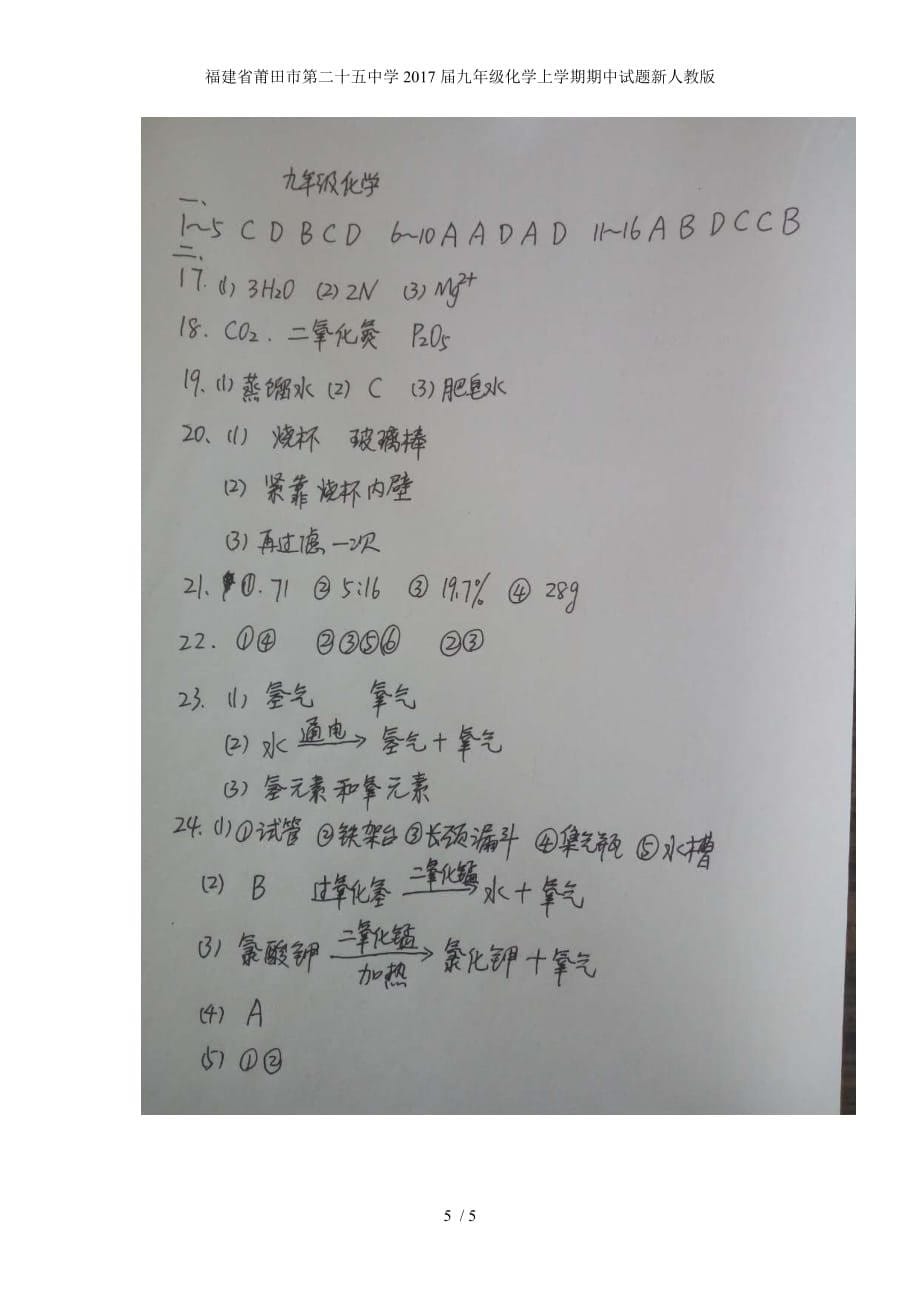 福建省莆田市第二十五中学2017届九年级化学上学期期中试题新人教版
九年级化学
一、
1~5 C D B C D 6~10 A A D A D 11~16 A B D C C B
二、
17. (1) 3H₂O (2) 2N (3) Mg²⁺
18. CO₂. 二氧化氮 P₂O₅
19、(1) 蒸馏水 (2) C (3) 肥皂水
20、(1) 烧杯 玻璃棒
(2) 紧靠烧杯内壁
(3) 再过滤一次
21、①. 71 ② 5:16 ③ 19.7% ④ 28g
22. ①④ ②③⑤⑥ ②③
23. (1) 氢气 氧气
(2) 水 通电→ 氢气+氧气
(3) 氢元素和氧元素
24. (1) ①试管 ②铁架台 ③长颈漏斗 ④集气瓶 ⑤水槽
(2) B 过氧化氢 二氧化锰→ 水+氧气
(3) 氯酸钾 二氧化锰→加热 氯化钾+氧气
(4) A
(5) ①②
5 / 5